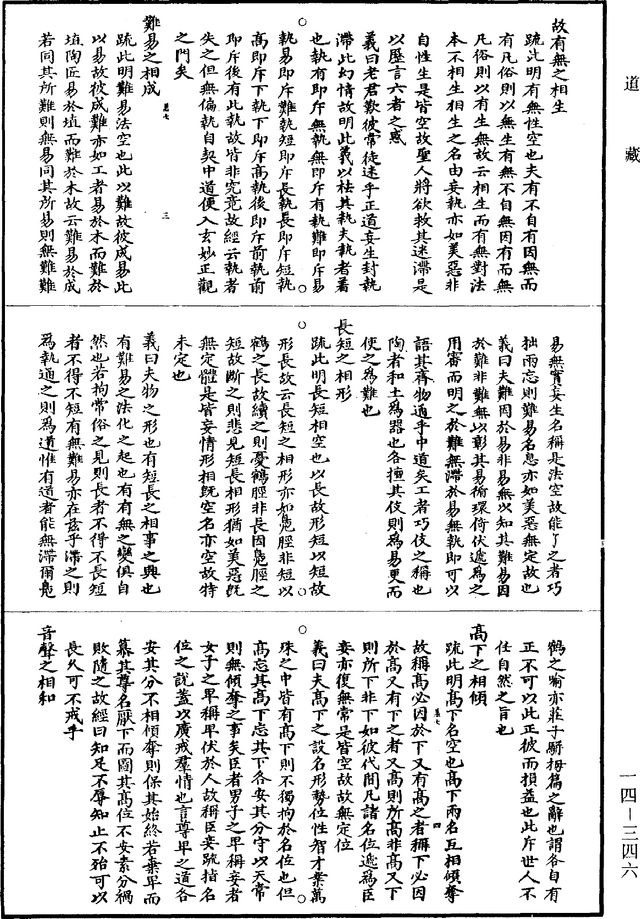 道藏
故有無之相生
疏此明有無性空也夫有不自有因無而
有凡俗則以無生有無不自無因有而無
凡俗則以有生無故云相生而有無對法
本不相生相生之名由妄執亦如美惡非
自性生是皆空故聖人將欲救其迷滯是
以歷言六者之惑
義曰老君歎彼常徒迷乎正道妄生封執
滯此幻情故明此義以祛其執夫執者著
也執有即斥無執無即斥有執難即斥易
執易即斥難執短即斥長執長即斥短執
高即斥下執下即斥高執後即斥前執前
即斥後有此執故皆非究竟故經云執者
失之但無偏執自契中道便入玄妙正觀
之門矣
難易之相成
疏此明難易法空也此以難故彼成易此
以易故彼成難亦如工者易於木而難於
埴陶匠易於埴而難於木故云難易於成
若同其所難則無易同其所易則無難難
易無實妄生名稱是法空故能了之者巧
拙兩忘則難易名息亦如美惡無定故也
義曰夫難因於易非易無以知其難易因
於難非難無以彰其易循環倚伏遞為之
用審而明之於難無滯於易無執即可以
語其齊物適乎中道矣工者巧伎之稱也
陶者和土為器也各擅其伎則為易更而
使之為難也
長短之相形
疏此明長短相空也以長故形短以短故
形長故云長短之相形亦如鳧脛非短以
鶴之長故續之則憂鶴脛非長因鳧脛之
短故斷之則悲見短長相形猶如美惡既
無定體是皆妄情形相既空名亦空故特
未定也
義曰夫物之形也有短長之相事之興也
有難易之法化之起也有有無之變俱自
然也若拘常俗之見則長者不得不長短
者不得不短有無難易亦在茲乎滯之則
為執通之則為道惟有道者能無滯爾鳧
鶴之喻亦莊子駢拇篇之辭也謂各自有
正不可以此正彼而損益也此斥世人不
任自然之旨也
高下之相傾
疏此明高下名空也高下兩名互相傾奪
故稱高必因於下又有高之者稱下必因
於高又有下之者又高則所高非高又下
則所下非下如彼代間凡諸名位遞為臣
妾亦復無常是皆空故故無定位
義曰夫高下之設名形勢位性智才業萬
殊之中皆有高下則不獨拘於名位也但
高忘其高下忘其下各安其分守以天常
則無傾奪之事矣臣者男子之卑稱妾者
女子之卑稱卑伏於人故稱臣妾疏指名
位之說蓋以廣戒羣情也言尊卑之道各
安其分不相傾奪則保其始終若棄卑而
慕其尊名厭下而圖其高位不安素分禍
敗隨之故經曰知足不辱知止不殆可以
長久可不戒乎
音聲之相和
一四—三四六